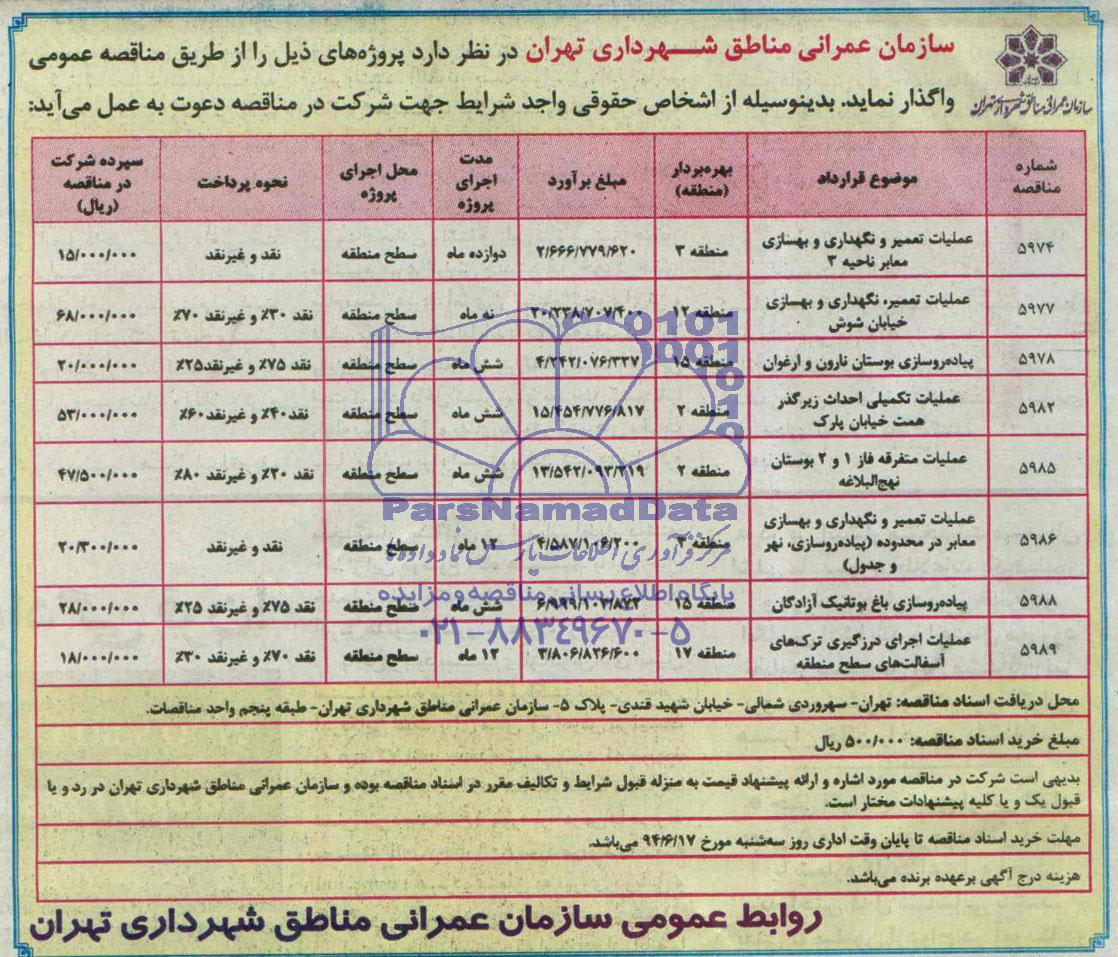 سازمان عمرانی مناطق شهرداری تهران
سازمان عمرانی مناطق شهرداری تهران در نظر دارد پروژه‌های ذیل را از طریق مناقصه عمومی
واگذار نماید. بدینوسیله از اشخاص حقوقی واجد شرایط جهت شرکت در مناقصه دعوت به عمل می‌آید:
شماره مناقصه موضوع قرارداد بهره‌بردار (منطقه) مبلغ برآورد مدت اجرای پروژه محل اجرای پروژه نحوه پرداخت سپرده شرکت در مناقصه (ریال)
۵۹۷۴ عملیات تعمیر و نگهداری و بهسازی معابر ناحیه ۳ منطقه ۳ ۲/۶۶۶/۷۷۹/۶۲۰ دوازده ماه سطح منطقه نقد و غیرنقد ۱۵/۰۰۰/۰۰۰
۵۹۷۷ عملیات تعمیر، نگهداری و بهسازی خیابان شوش منطقه ۱۲ ۲۰/۲۳۸/۷۰۷/۴۰۰ نه ماه سطح منطقه نقد ۳۰٪ و غیرنقد ۷۰٪ ۶۸/۰۰۰/۰۰۰
۵۹۷۸ پیاده‌روسازی بوستان نارون و ارغوان منطقه ۱۵ ۴/۲۴۲/۰۷۶/۳۳۷ شش ماه سطح منطقه نقد ۷۵٪ و غیرنقد۲۵٪ ۲۰/۰۰۰/۰۰۰
۵۹۸۲ عملیات تکمیلی احداث زیرگذر همت خیابان پارک منطقه ۲ ۱۵/۴۵۴/۷۷۶/۸۱۷ شش ماه سطح منطقه نقد۴۰٪ و غیرنقد۶۰٪ ۵۳/۰۰۰/۰۰۰
۵۹۸۵ عملیات متفرقه فاز ۱ و ۲ بوستان نهج‌البلاغه منطقه ۲ ۱۳/۵۴۲/۰۹۳/۲۱۹ شش ماه سطح منطقه نقد ۲۰٪ و غیرنقد ۸۰٪ ۴۷/۵۰۰/۰۰۰
۵۹۸۶ عملیات تعمیر و نگهداری و بهسازی معابر در محدوده (پیاده‌روسازی، نهر و جدول) منطقه ۳ ۴/۵۸۷/۱۰۶/۲۰۰ ۱۲ ماه سطح منطقه نقد و غیرنقد ۲۰/۳۰۰/۰۰۰
۵۹۸۸ پیاده‌روسازی باغ بوتانیک آزادگان منطقه ۱۵ ۶/۹۹۹/۱۰۳/۸۷۳ شش ماه سطح منطقه نقد ۷۵٪ و غیرنقد ۲۵٪ ۲۸/۰۰۰/۰۰۰
۵۹۸۹ عملیات اجرای درزگیری ترک‌های آسفالت‌های سطح منطقه منطقه ۱۷ ۳/۸۰۶/۸۲۶/۶۰۰ ۱۲ ماه سطح منطقه نقد ۷۰٪ و غیرنقد ۳۰٪ ۱۸/۰۰۰/۰۰۰
ParsNamadData
مرکز فرآوری اطلاعات پارس نماد داده‌ها
پایگاه اطلاع رسانی مناقصه و مزایده
۰۲۱-۸۸۳۴۹۶۷۰-۵
محل دریافت اسناد مناقصه: تهران- سهروردی شمالی- خیابان شهید قندی- پلاک ۵- سازمان عمرانی مناطق شهرداری تهران- طبقه پنجم واحد مناقصات.
مبلغ خرید اسناد مناقصه: ۵۰۰/۰۰۰ ریال
بدیهی است شرکت در مناقصه مورد اشاره و ارائه پیشنهاد قیمت به منزله قبول شرایط و تکالیف مقرر در اسناد مناقصه بوده و سازمان عمرانی مناطق شهرداری تهران در رد و یا
قبول یک و یا کلیه پیشنهادات مختار است.
مهلت خرید اسناد مناقصه تا پایان وقت اداری روز سه‌شنبه مورخ ۹۴/۶/۱۷ می‌باشد.
هزینه درج آگهی برعهده برنده می‌باشد.
روابط عمومی سازمان عمرانی مناطق شهرداری تهران